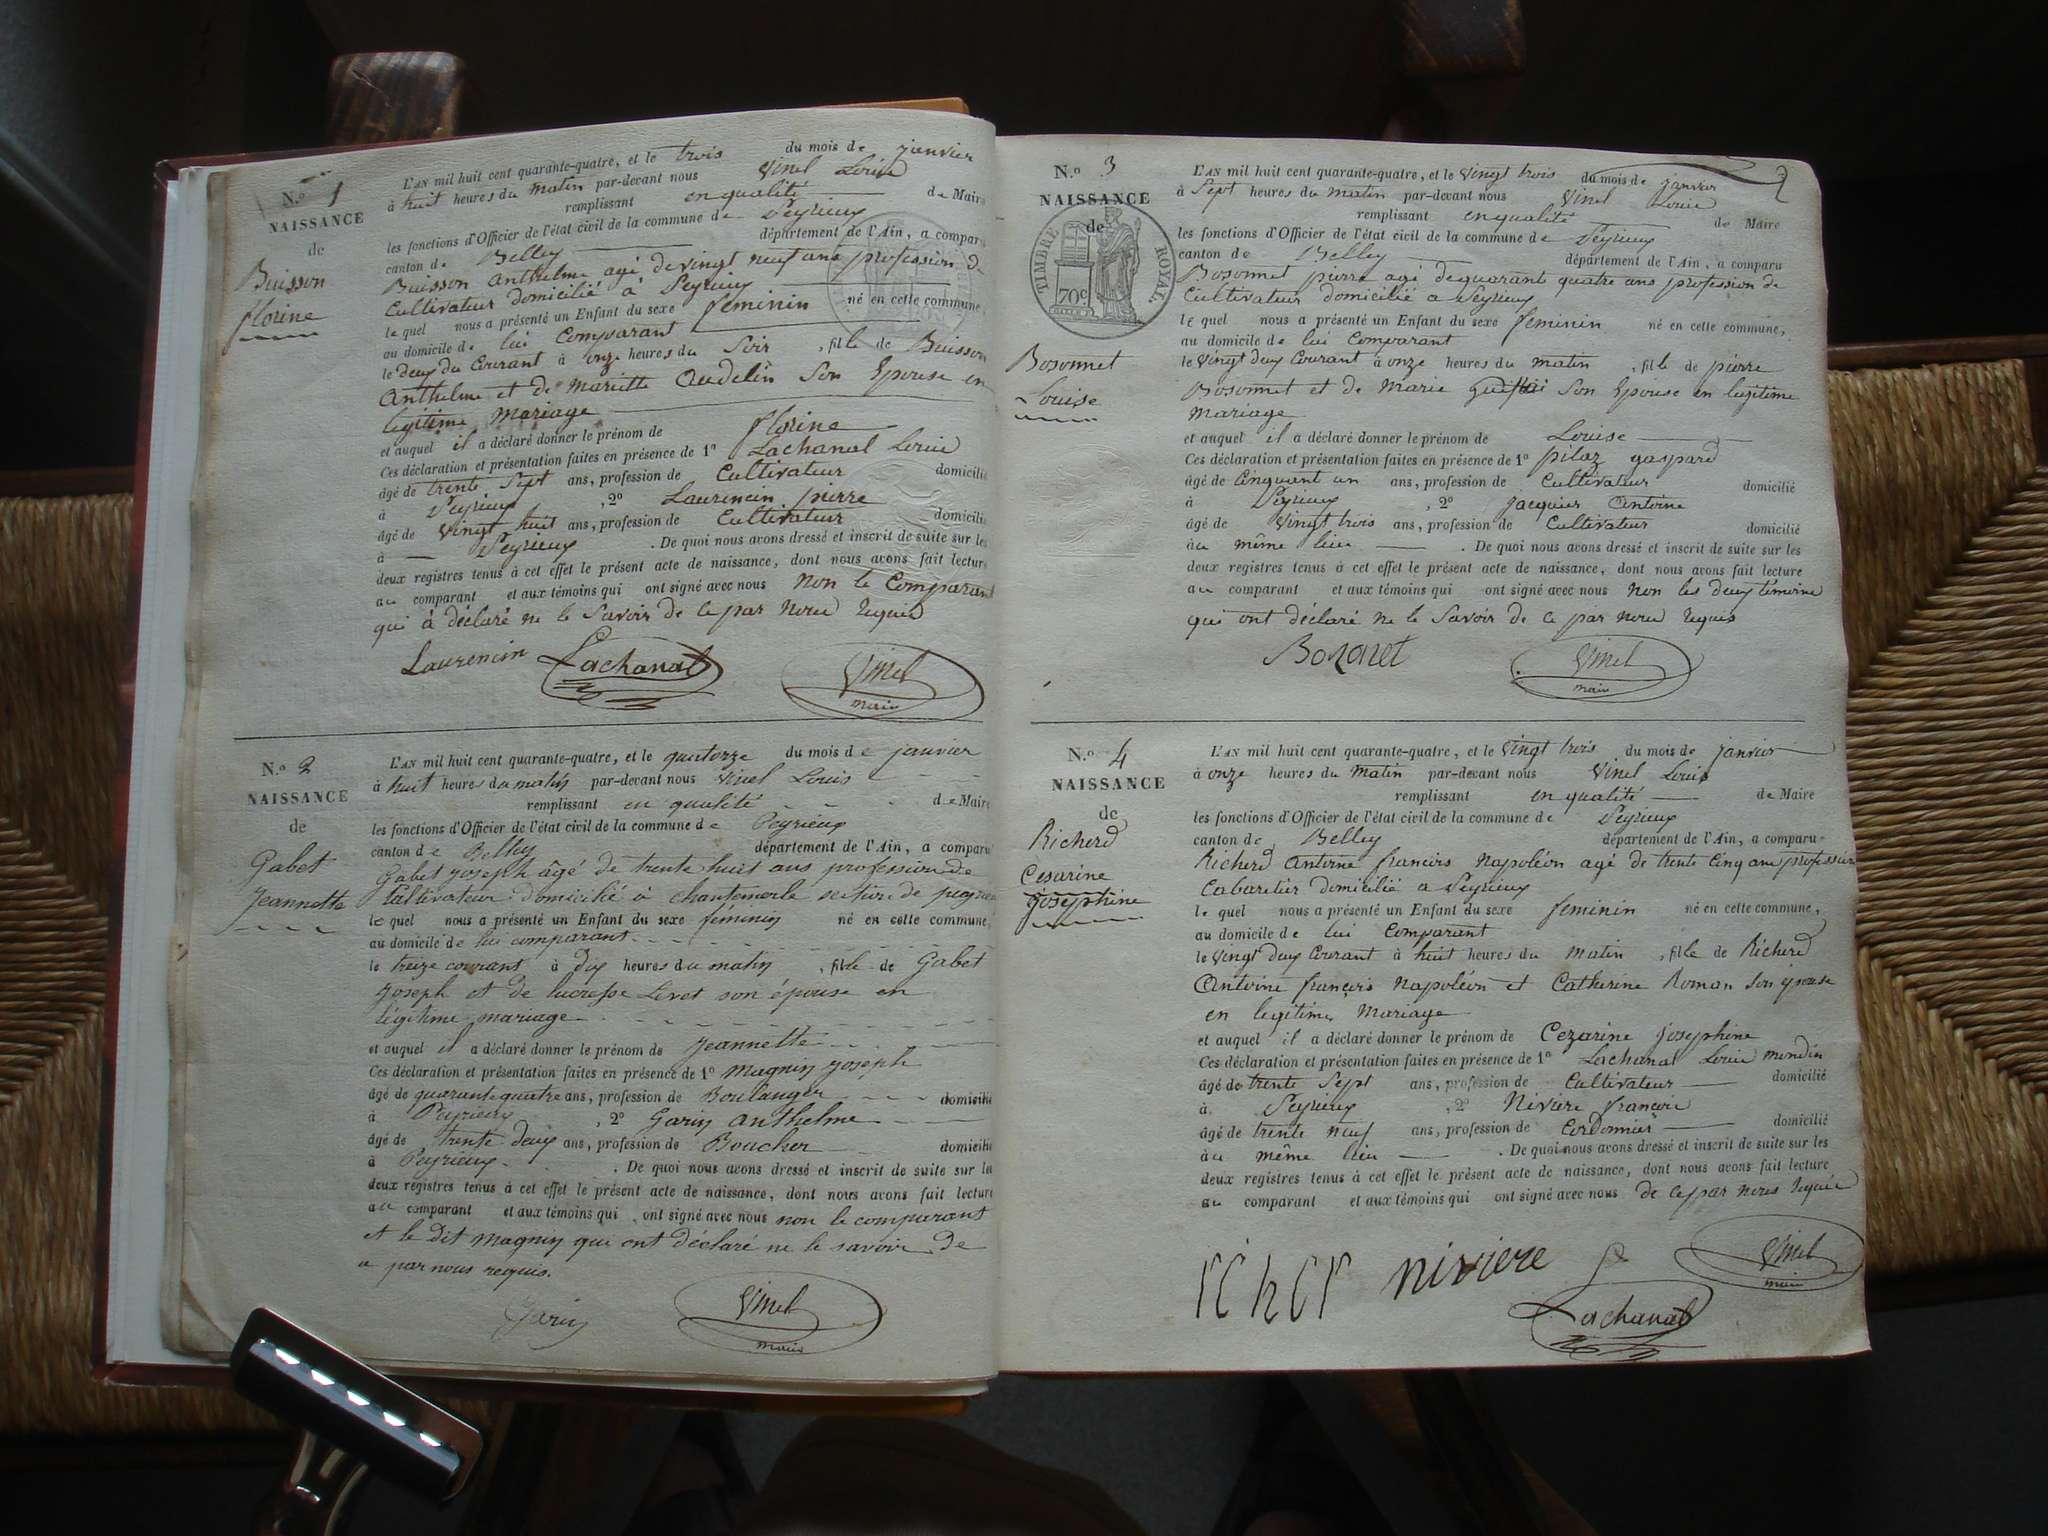 N.o 1
NAISSANCE
de
Buisson
florine
L'AN mil huit cent quarante-quatre, et le trois du mois de janvier
à huit heures du matin par-devant nous Vinel Louis
remplissant en qualité de Maire
les fonctions d'Officier de l'état civil de la commune de Peyrieux
canton de Belley département de l'Ain, a comparu
Buisson Anthelme agé de vingt neuf ans profession de
Cultivateur domicilié à Peyrieux
le quel nous a présenté un Enfant du sexe féminin né en cette commune,
au domicile de lui Comparant
le deux du Courant à onze heures du Soir , fille de Buisson
Anthelme et de Mariette Audelin Son Epouse en
legitime Mariage
et auquel il a déclaré donner le prénom de florine
Ces déclaration et présentation faites en présence de 1o Lachanal Louis
âgé de trente Sept ans, profession de Cultivateur domicilié
à Peyrieux , 2o Laurencin pierre
âgé de vingt huit ans, profession de Cultivateur domicilié
à Peyrieux . De quoi nous avons dressé et inscrit de suite sur les
deux registres tenus à cet effet le présent acte de naissance, dont nous avons fait lecture
au comparant et aux témoins qui ont signé avec nous non le Comparant
qui à déclaré ne le Savoir de ce par nous requis
Laurencin Lachanal Vinel
maire
N.o 2
NAISSANCE
de
Gabet
Jeannette
L'AN mil huit cent quarante-quatre, et le quatorze du mois de janvier
à huit heures du matin par-devant nous Vinel Louis
remplissant en qualité de Maire
les fonctions d'Officier de l'état civil de la commune de Peyrieux
canton de Belley département de l'Ain, a comparu
Gabet Joseph âgé de trente huit ans profession de
Cultivateur domicilié à chantemerle section de
le quel nous a présenté un Enfant du sexe féminin né en cette commune,
au domicile de lui comparant
le treize courant à dix heures du matin , fille de Gabet
Joseph et de lucresse Livet son épouse en
légitime mariage
et auquel il a déclaré donner le prénom de Jeannette
Ces déclaration et présentation faites en présence de 1o Magnin Joseph
âgé de quarante quatre ans, profession de Boulanger domicilié
à Peyrieux , 2o Garin Anthelme
âgé de trente deux ans, profession de Boucher domicilié
à Peyrieux . De quoi nous avons dressé et inscrit de suite sur les
deux registres tenus à cet effet le présent acte de naissance, dont nous avons fait lecture
au comparant et aux témoins qui ont signé avec nous non le comparant
et le dit Magnin qui ont déclaré ne le savoir de
ce par nous requis.
Garin Vinel
maire
2
N.o 3
NAISSANCE
de
TIMBRE ROYAL
70c
Bosonnet
Louise
L'AN mil huit cent quarante-quatre, et le vingt trois du mois de janvier
à Sept heures du matin par-devant nous Vinel Louis
remplissant en qualité de Maire
les fonctions d'Officier de l'état civil de la commune de Peyrieux
canton de Belley département de l'Ain, a comparu
Bosonnet pierre agé de quarante quatre ans profession de
Cultivateur domicilié a Peyrieux
le quel nous a présenté un Enfant du sexe féminin né en cette commune,
au domicile de lui Comparant
le vingt deux Courant à onze heures du matin , fille de pierre
Bosonnet et de Marie Son Epouse en legitime
mariage
et auquel il a déclaré donner le prénom de Louise
Ces déclaration et présentation faites en présence de 1o pilaz gaspard
âgé de Cinquant un ans, profession de Cultivateur domicilié
à Peyrieux , 2o Jacquier Antoine
âgé de vingt trois ans, profession de Cultivateur domicilié
au même lieu . De quoi nous avons dressé et inscrit de suite sur les
deux registres tenus à cet effet le présent acte de naissance, dont nous avons fait lecture
au comparant et aux témoins qui ont signé avec nous non les deux témoins
qui ont déclaré ne le Savoir de ce par nous requis
Bozonet Vinel
maire
N.o 4
NAISSANCE
de
Richerd
Cesarine
Josephine
L'AN mil huit cent quarante-quatre, et le vingt trois du mois de janvier
à onze heures du matin par-devant nous Vinel Louis
remplissant en qualité de Maire
les fonctions d'Officier de l'état civil de la commune de Peyrieux
canton de Belley département de l'Ain, a comparu
Richerd Antoine françois Napoléon agé de trente Cinq ans profession
Cabaretier domicilié a Peyrieux
le quel nous a présenté un Enfant du sexe féminin né en cette commune,
au domicile de lui Comparant
le vingt deux Courant à huit heures du matin , fille de Richerd
Antoine françois Napoléon et Catherine Roman Son épouse
en legitime Mariage
et auquel il a déclaré donner le prénom de Cezarine Josephine
Ces déclaration et présentation faites en présence de 1o Lachanal Louis mondin
âgé de trente Sept ans, profession de Cultivateur domicilié
à Peyrieux , 2o Niviere françois
âgé de trente neuf ans, profession de Cordonnier domicilié
au même lieu . De quoi nous avons dressé et inscrit de suite sur les
deux registres tenus à cet effet le présent acte de naissance, dont nous avons fait lecture
au comparant et aux témoins qui ont signé avec nous de ce par nous requis
richer niviere Lachanal Vinel
maire